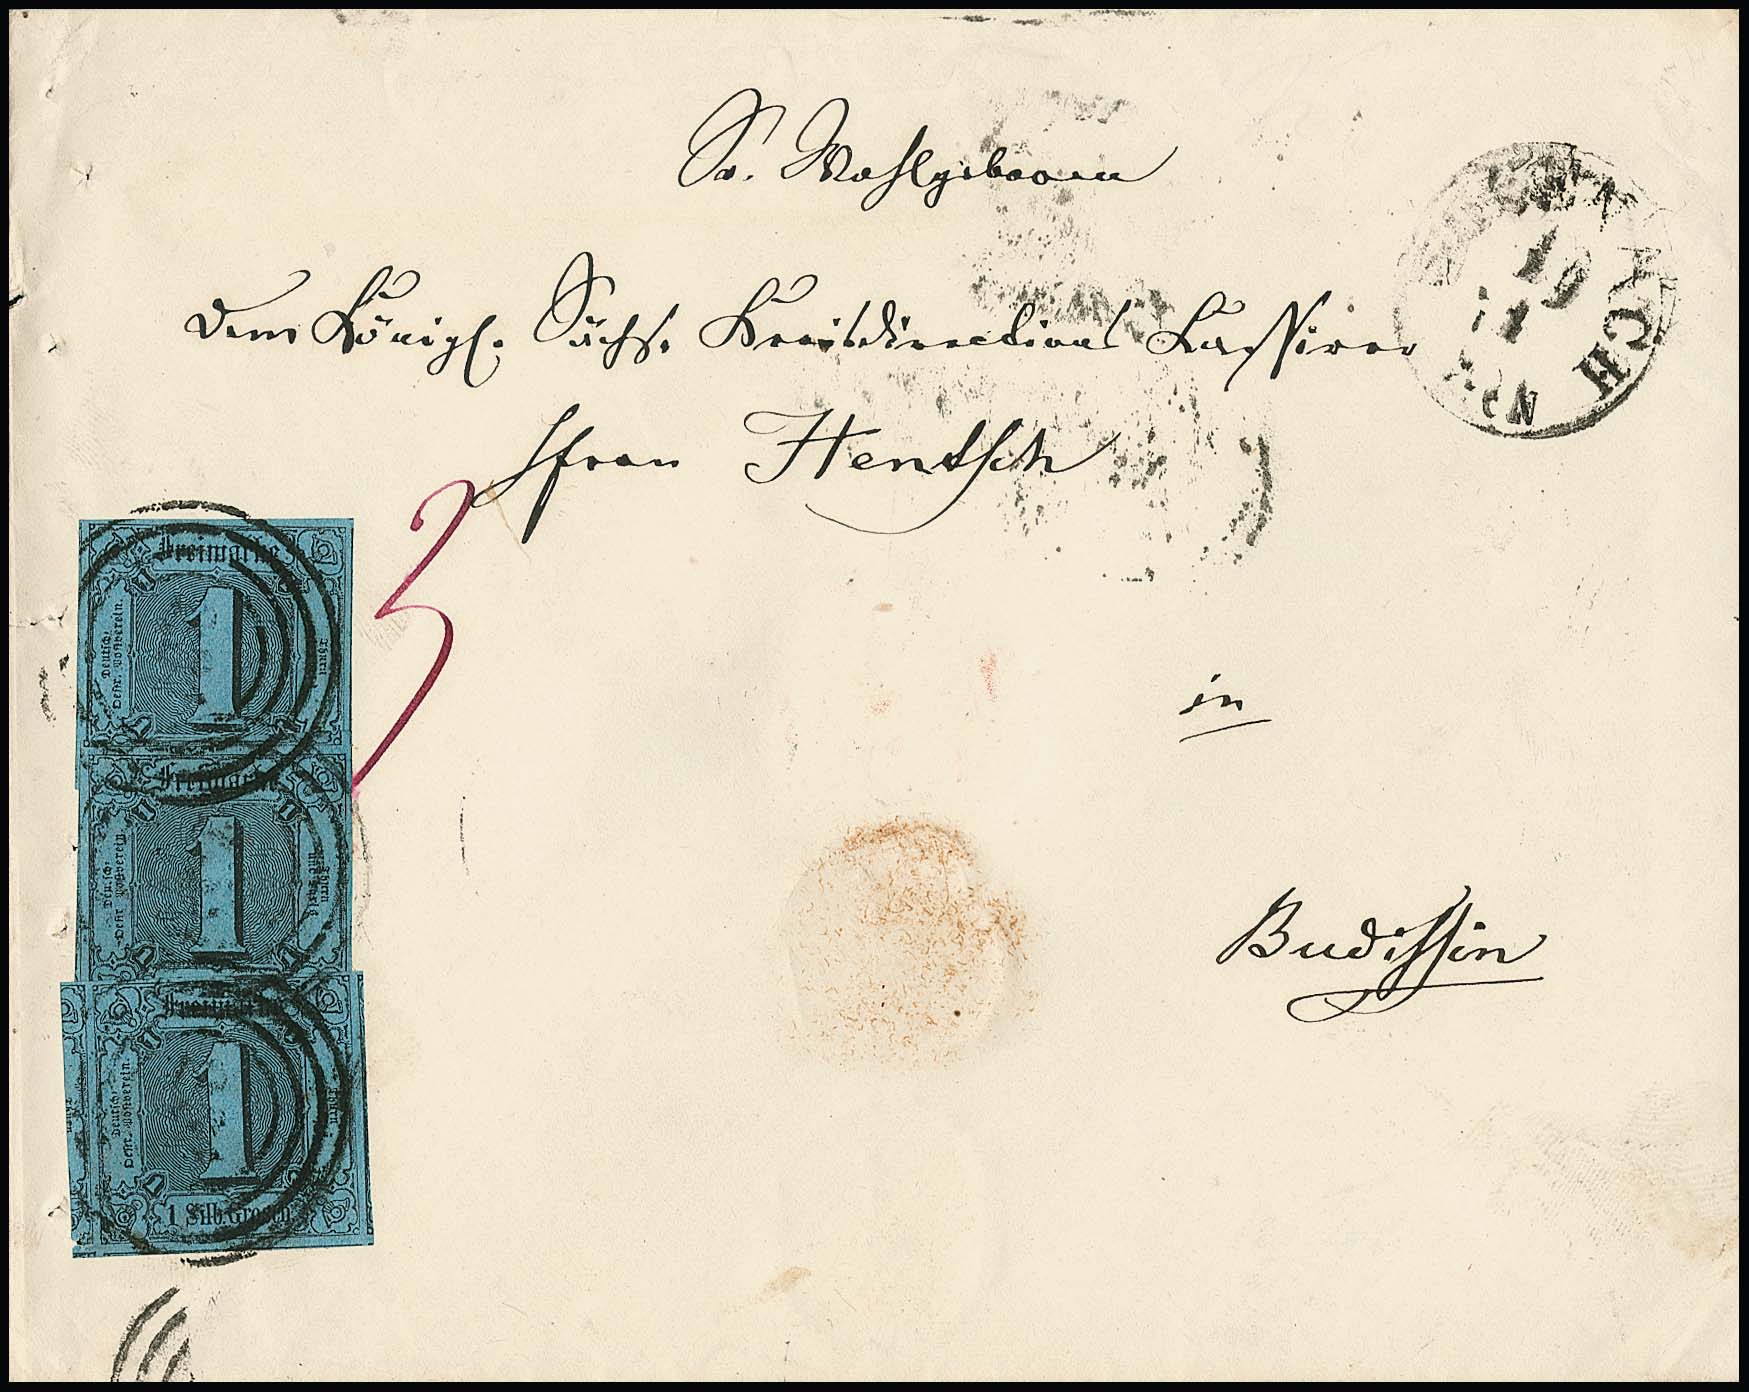 Sr. Wohlgeboren
dem Königl. Sächs. Kreisdirections Kassirer
Herrn Hentsch
in
Budissin
3
Freimarke
Deutsch-
Oestr. Postverein.
1
1
1
1
Freimarke
Deutsch-
Oestr. Postverein.
1
1
1
1
1
Freimarke
Deutsch-
Oestr. Postverein.
1
1
1
1 Silb. Grosch.
19
ACH